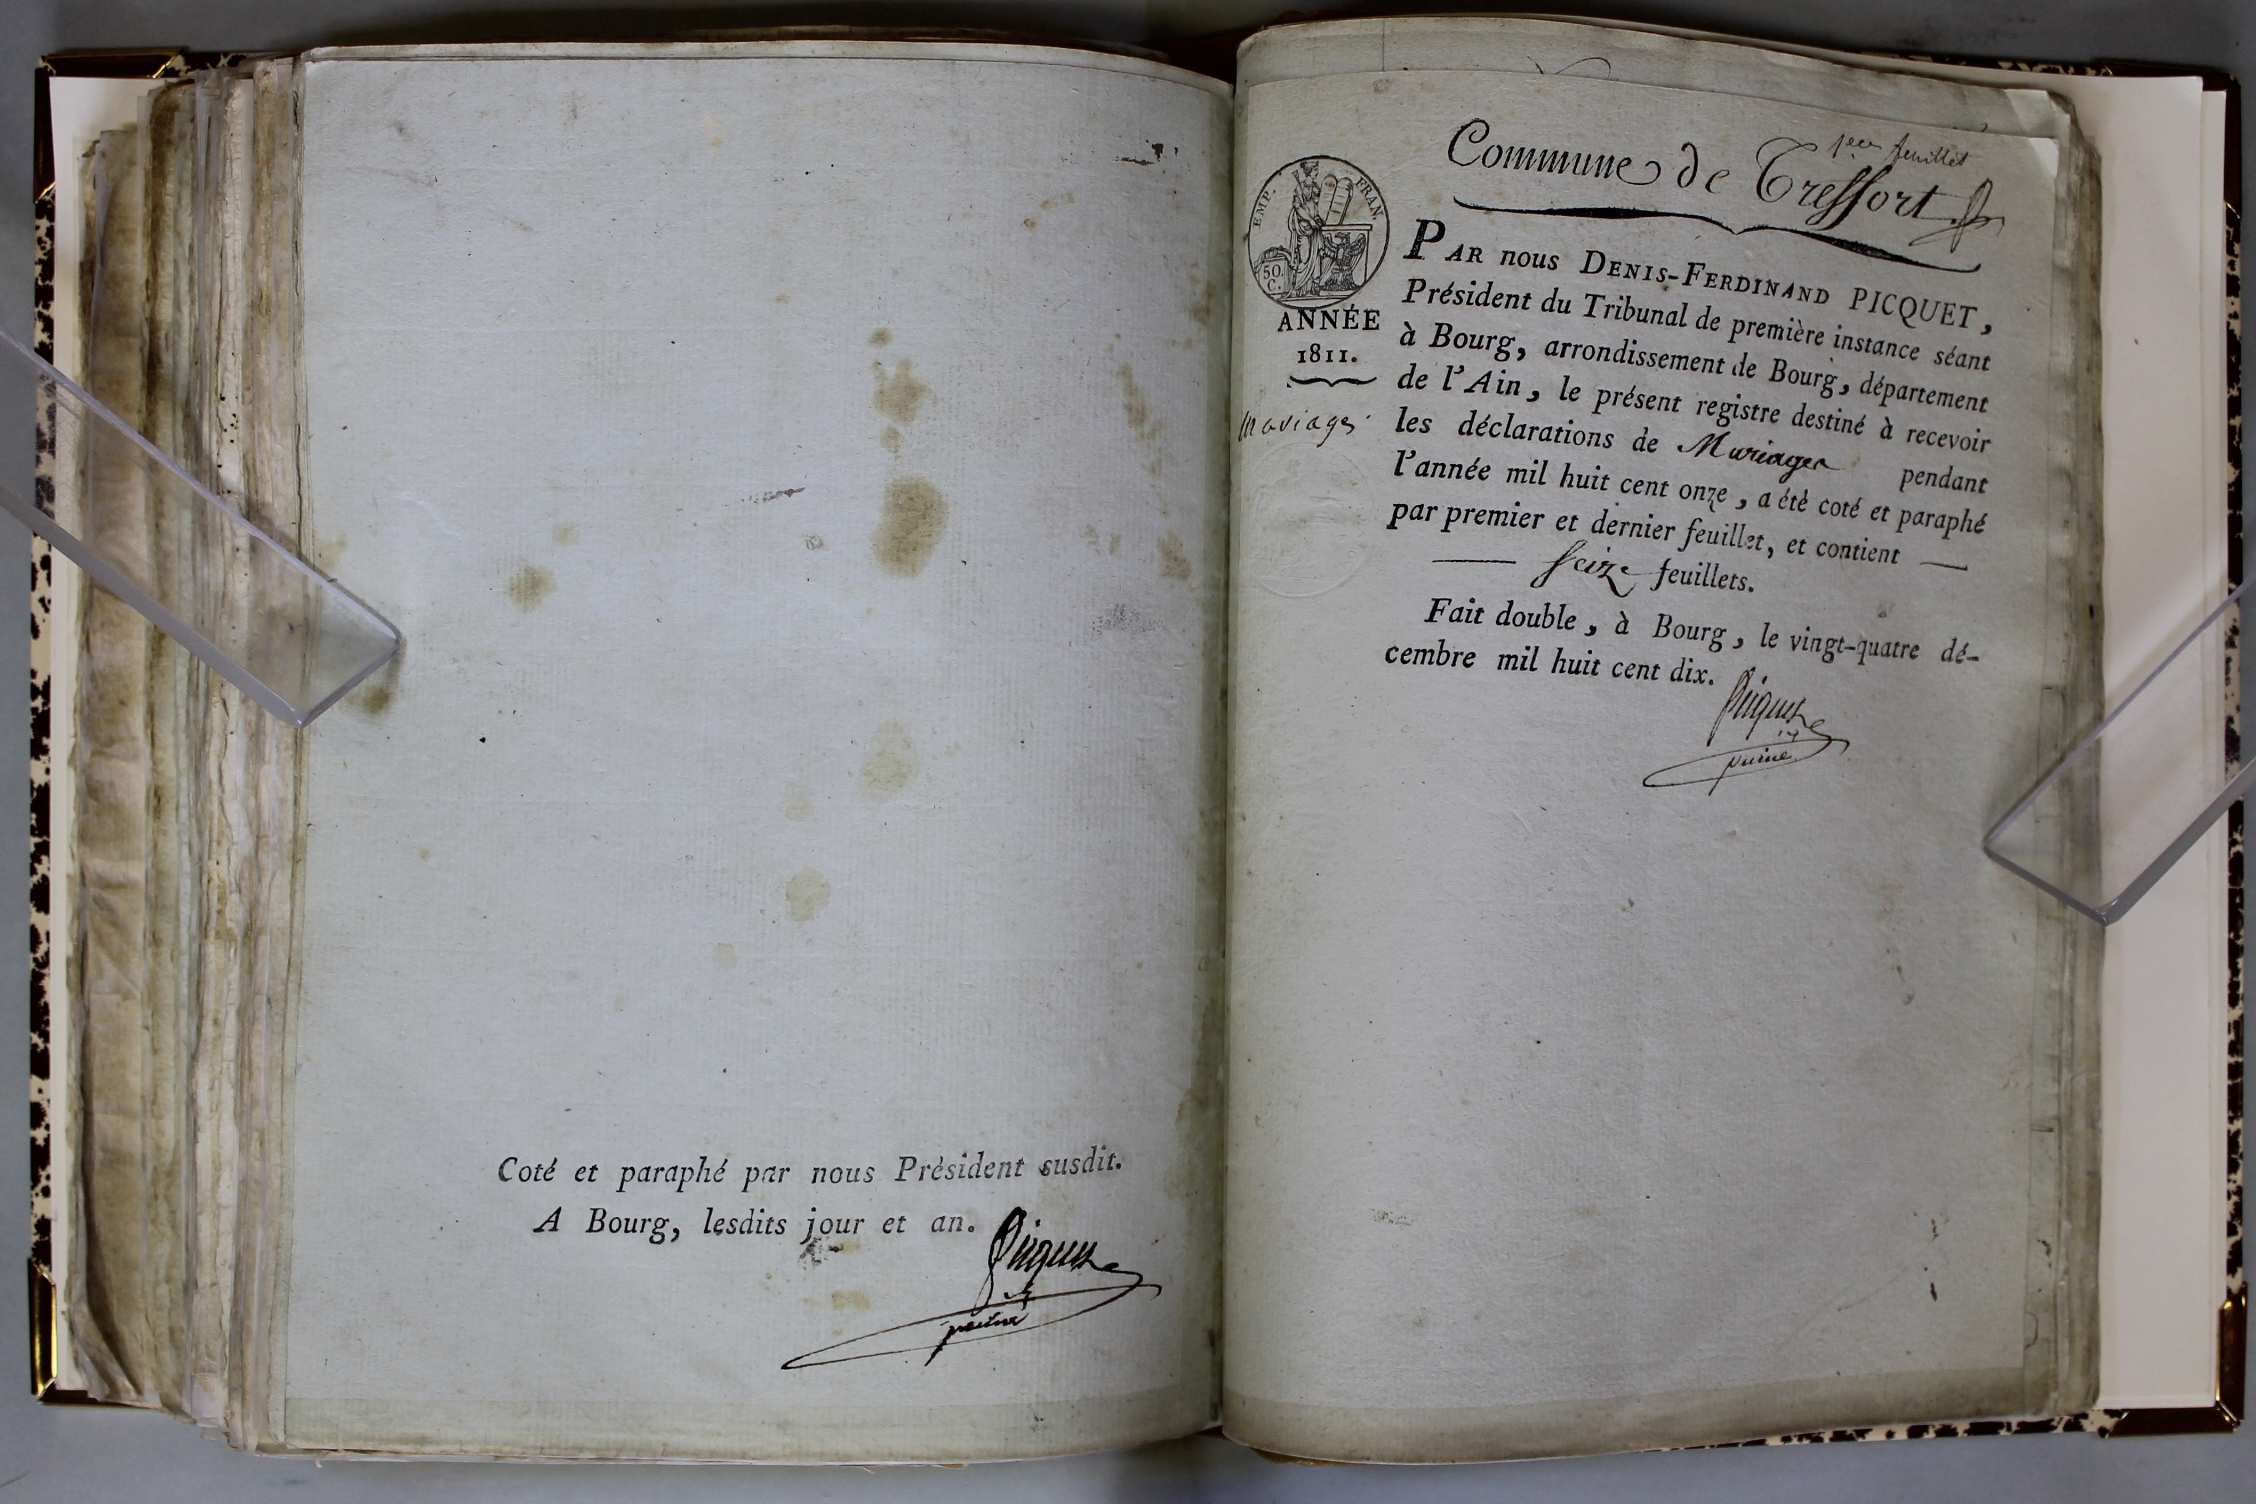 Coté et paraphé par nous Président susdit.
A Bourg, lesdits jour et an.
Picquet
1er feuillet
Commune de Treffort
EMP. FRAN.
50.
C.
ANNÉE
1811.
mariages
PAR nous DENIS-FERDINAND PICQUET,
Président du Tribunal de première instance séant
à Bourg, arrondissement de Bourg, département
de l'Ain, le présent registre destiné à recevoir
les déclarations de Mariages pendant
l'année mil huit cent onze, a été coté et paraphé
par premier et dernier feuillet, et contient —
— Seize feuillets.
Fait double, à Bourg, le vingt-quatre dé-
cembre mil huit cent dix.
Picquet